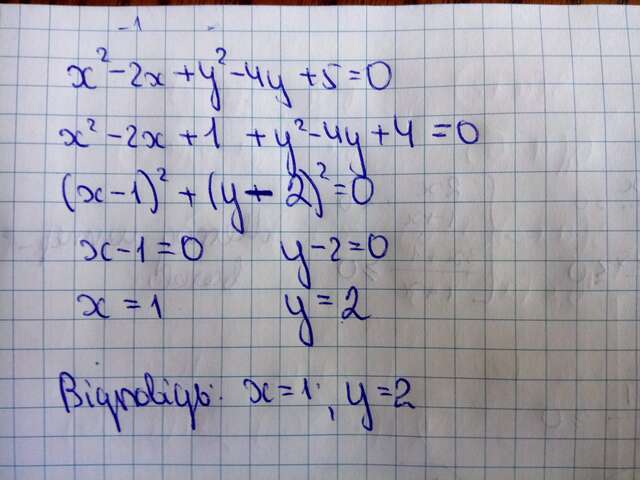 x² - 2x + y² - 4y + 5 = 0
x² - 2x + 1 + y² - 4y + 4 = 0
(x - 1)² + (y - 2)² = 0
x - 1 = 0 y - 2 = 0
x = 1 y = 2
Відповідь: x = 1; y = 2